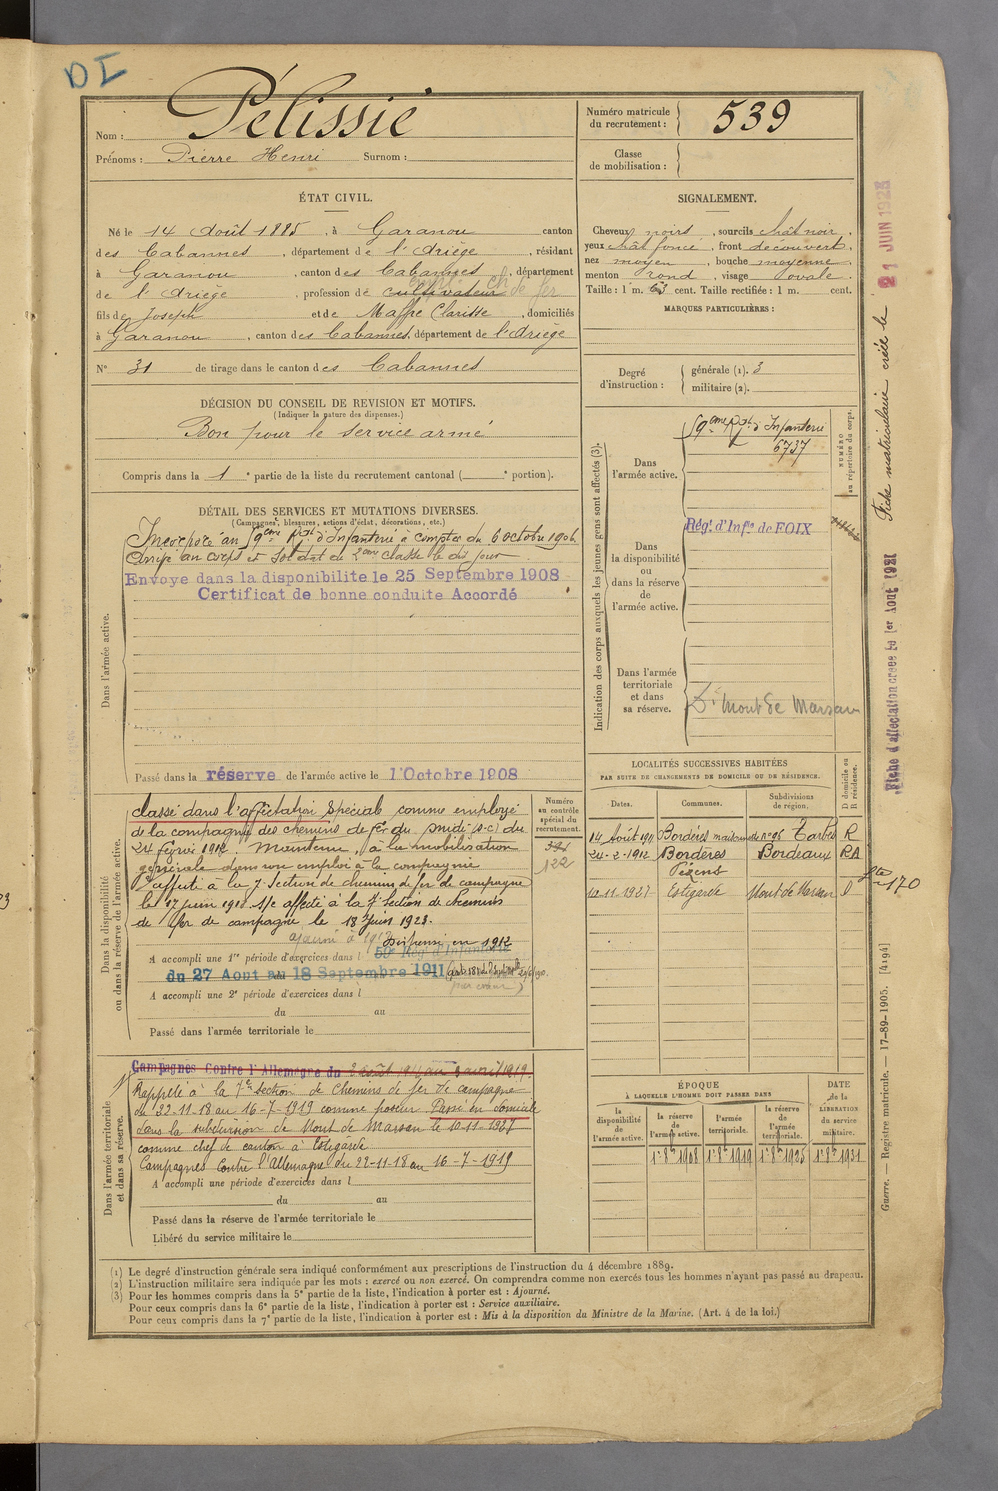 DI
Nom : Pélissié
Prénoms : Pierre Henri Surnom :
Numéro matricule
du recrutement : 539
Classe
de mobilisation :
ÉTAT CIVIL.
Né le 14 Août 1885, à Garanou canton
des Cabannes, département de l'Ariège, résidant
à Garanou, canton des Cabannes, département
de l'Ariège, profession de cultivateur empl. ch. de fer
fils de Joseph et de Maffre Clarisse, domiciliés
à Garanou, canton des Cabannes, département de l'Ariège
N° 31 de tirage dans le canton des Cabannes
SIGNALEMENT.
Cheveux noirs, sourcils chât noir,
yeux chât foncé, front découvert,
nez moyen, bouche moyenne
menton rond, visage ovale.
Taille : 1 m. 63 cent. Taille rectifiée : 1 m. cent.
MARQUES PARTICULIÈRES :
Degré
d'instruction :
générale (1). 3
militaire (2).
DÉCISION DU CONSEIL DE REVISION ET MOTIFS.
(Indiquer la nature des dispenses.)
Bon pour le service armé
Compris dans la 1e partie de la liste du recrutement cantonal ( e portion).
DÉTAIL DES SERVICES ET MUTATIONS DIVERSES.
(Campagnes, blessures, actions d'éclat, décorations, etc.)
Dans l'armée active.
Incorporé au 59ème Rgt d'Infanterie à compter du 6 octobre 1906.
Arrivé au corps et soldat de 2ème classe le dit jour.
Envoyé dans la disponibilité le 25 Septembre 1908
Certificat de bonne conduite Accordé
Passé dans la réserve de l'armée active le 1 Octobre 1908
Indication des corps auxquels les jeunes gens sont affectés (3).
NUMÉRO
au répertoire du corps.
Dans
l'armée active.
59ème Rgt d'Infanterie
6737
Dans
la disponibilité
ou
dans la réserve
de
l'armée active.
Rég. d'Infie de FOIX
Dans l'armée
territoriale
et dans
sa réserve.
Mont de Marsan
Dans la disponibilité
ou dans la réserve de l'armée active.
Numéro
au contrôle
spécial du
recrutement.
122
classé dans l'affectation spéciale comme employé
de la compagnie des chemins de fer du midi (S-C) du
24 février 1912. Maintenu, à la mobilisation
générale dans son emploi à la compagnie
affecté à la 7e Section de chemins de fer de campagne
le 17 juin 1918. S/c affecté à la 7e Section de chemins
de fer de campagne le 18 juin 1923.
ajourné à 1912 Dispensé en 1912
A accompli une 1re période d'exercices dans l 59e Rég d'Infanterie
du 27 Aout au 18 Septembre 1911
par erreur)
A accompli une 2e période d'exercices dans l
du au
Passé dans l'armée territoriale le
LOCALITÉS SUCCESSIVES HABITÉES
PAR SUITE DE CHANGEMENTS DE DOMICILE OU DE RÉSIDENCE.
Dates.
Communes.
Subdivisions
de région.
D domicile ou
R résidence.
14 Août 1911 Bordères maisonnette n° 96 Tarbes R
24-2-1912 Bordères Bordeaux RA
10.11.1927 Estigarde Mont de Marsan D
170
Dans l'armée territoriale
et dans sa réserve.
Campagnes Contre l'Allemagne du 2 août 1914 au 3 avril 1919.
Rappelé à la 7e Section de chemins de fer de campagne
du 22-11-18 au 16-7-1919 comme poseur Passé en domicile
dans la subdivision de Mont de Marsan le 10-11-1927
comme chef de canton à Estigarde
Campagnes Contre l'Allemagne du 22-11-18 au 16-7-1919
A accompli une période d'exercices dans l
du au
Passé dans la réserve de l'armée territoriale le
Libéré du service militaire le
ÉPOQUE
À LAQUELLE L'HOMME DOIT PASSER DANS
DATE
de la
LIBÉRATION
du service
militaire.
la
disponibilité
de
l'armée active.
la réserve
de
l'armée active.
l'armée
territoriale.
la réserve
de
l'armée
territoriale.
1er 8bre 1908 1er 8bre 1919 1er 8bre 1925 1er 8bre 1931
(1) Le degré d'instruction générale sera indiqué conformément aux prescriptions de l'instruction du 4 décembre 1889.
(2) L'instruction militaire sera indiquée par les mots : exercé ou non exercé. On comprendra comme non exercés tous les hommes n'ayant pas passé au drapeau.
(3) Pour les hommes compris dans la 5e partie de la liste, l'indication à porter est : Ajourné.
Pour ceux compris dans la 6e partie de la liste, l'indication à porter est : Service auxiliaire.
Pour ceux compris dans la 7e partie de la liste, l'indication à porter est : Mis à la disposition du Ministre de la Marine. (Art. 4 de la loi.)
Fiche matriculaire créée le 21 JUIN 1928
Fiche d'affectation créée le 1er Aout 1921
Guerre. — Registre matricule. — 17-89-1905. [4194]